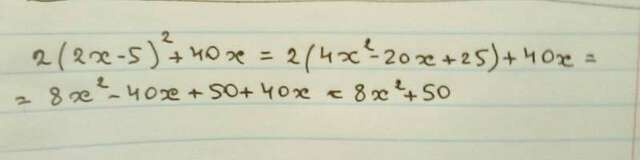 2(2x-5)²+40x = 2(4x²-20x+25)+40x =
= 8x²-40x+50+40x = 8x²+50